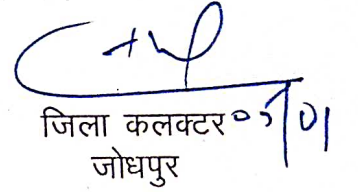 जिला कलक्टर
जोधपुर